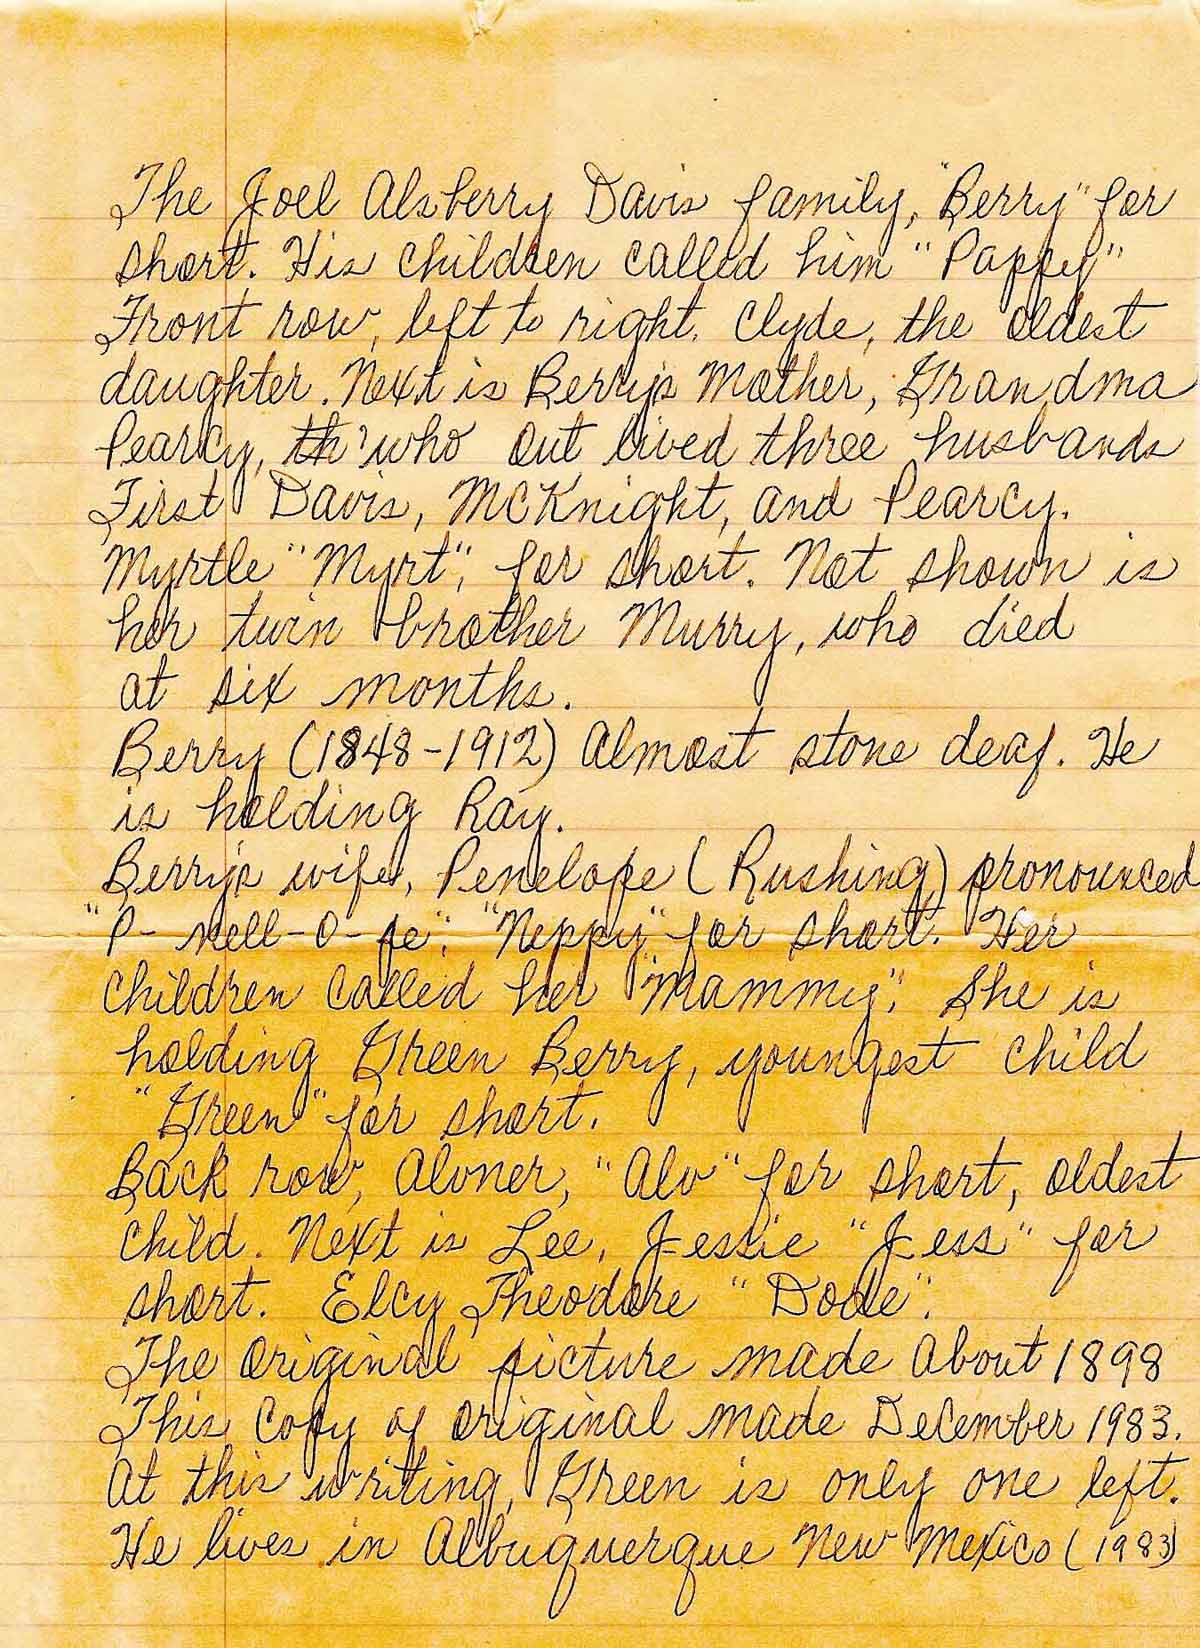 The Joel Alsberry Davis family, "Berry" for
short. His children called him "Pappy"
Front row, left to right. Clyde, the oldest
daughter. Next is Berry's Mother, Grandma
Pearcy, who out lived three husbands
First Davis, McKnight, and Pearcy.
Myrtle "Myrt", for short. Not shown is
her twin brother Murry, who died
at six months.
Berry (1848-1912) Almost stone deaf. He
is holding Ray.
Berry's wife, Penelope (Rushing) pronounced
"P- nell-O-pe". "Neppy" for short. Her
children called her "Mammy". She is
holding Green Berry, youngest child
"Green" for short.
Back row, Alvner, "Alv" for short, oldest
child. Next is Lee, Jessie "Jess" for
short. Elcy Theodore "Dode".
The original picture made about 1898
This copy of original made December 1983.
At this writing, Green is only one left.
He lives in Albuquerque New Mexico (1983)